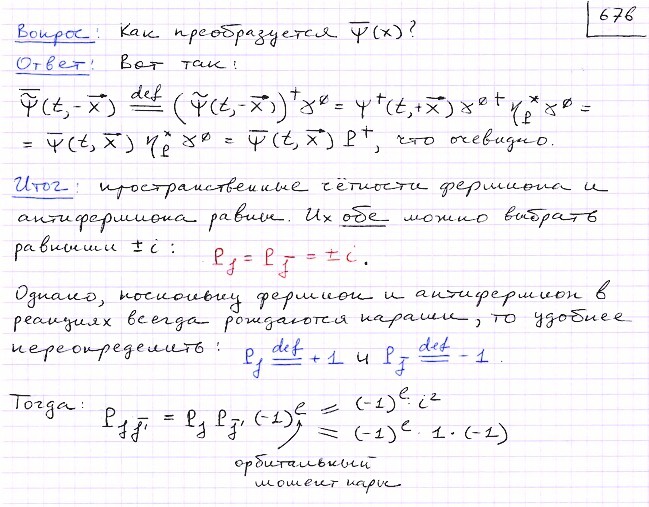 676
Вопрос: Как преобразуется Ψ̄(x)?
Ответ: Вот так:
Ψ̃̄(t,-x⃗) def= (Ψ̃(t,-x⃗))†γ⁰ = Ψ†(t,+x⃗) γ⁰† η*_P γ⁰ =
= Ψ̄(t,x⃗) η*_P γ⁰ = Ψ̄(t,x⃗) P†, что очевидно.
Итог: пространственные чётности фермиона и
антифермиона равны. Их обе можно выбрать
равными ±i: P_f = P_f̄ = ±i.
Однако, поскольку фермион и антифермион в
реакциях всегда рождаются парами, то удобнее
переопределить: P_f def= +1 и P_f̄ def= -1.
Тогда: P_ff̄' = P_f P_f̄' (-1)^ℓ = (-1)^ℓ · i²
= (-1)^ℓ · 1 · (-1)
орбитальный
момент пары